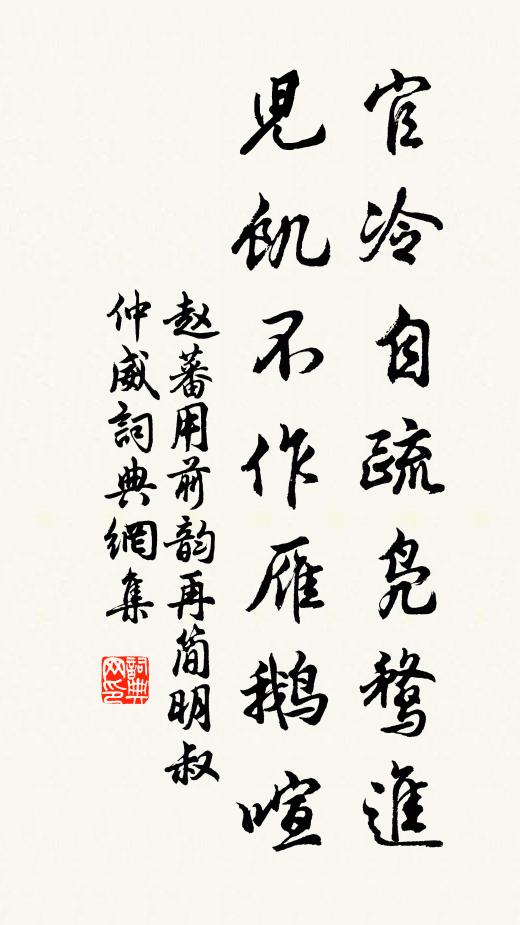 官冷自疏凫鶩進
兒飢不作雁鵝喧
赵蕃用前韵再简明叔
仲威詞典網集
詞典网印